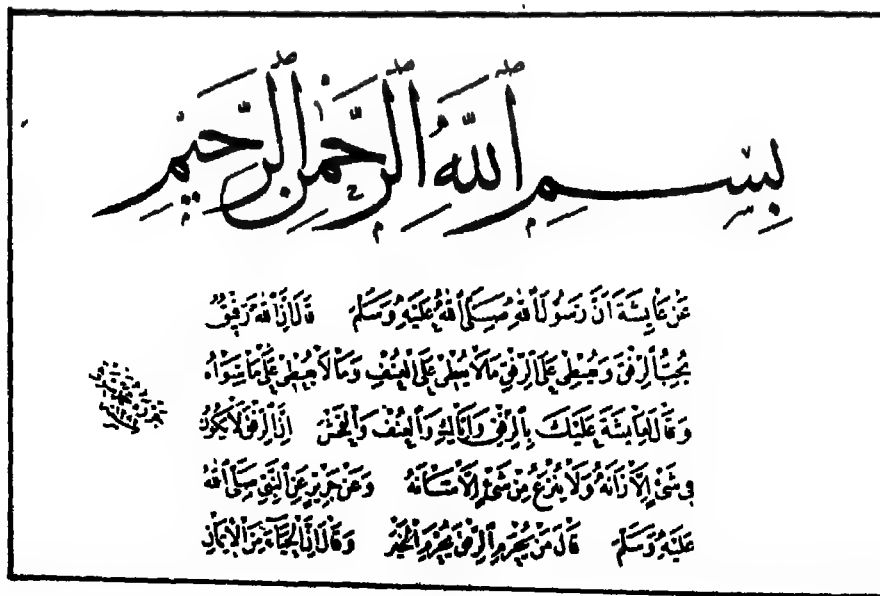 بِسْمِ ٱللَّهِ ٱلرَّحْمٰنِ ٱلرَّحِيمِ
عَنْ عَايِشَةَ اَنَّ رَسُولَ ٱللهِ صَلَّى ٱللهُ عَلَيْهِ وَسَلَّمَ قَالَ اِنَّ ٱللهَ رَفِيقٌ
يُحِبُّ ٱلرِّفْقَ وَيُعْطِى عَلَى ٱلرِّفْقِ مَا لَا يُعْطِى عَلَى ٱلْعُنْفِ وَمَا لَا يُعْطِى عَلَى مَا سِوَاهُ
وَقَالَ لِعَايِشَةَ عَلَيْكِ بِٱلرِّفْقِ وَاِيَّاكِ وَٱلْعُنْفَ وَٱلْفُحْشَ اِنَّ ٱلرِّفْقَ لَا يَكُونُ
فِى شَىْءٍ اِلَّا زَانَهُ وَلَا يُنْزَعُ مِنْ شَىْءٍ اِلَّا شَانَهُ وَعَنْ جَرِيرٍ عَنِ ٱلنَّبِىِّ صَلَّى ٱللهُ
عَلَيْهِ وَسَلَّمَ قَالَ مَنْ يُحْرَمِ ٱلرِّفْقَ يُحْرَمِ ٱلْخَيْرَ وَقَالَ اِنَّ ٱلْحَيَاءَ مِنَ ٱلْاِيمَانِ